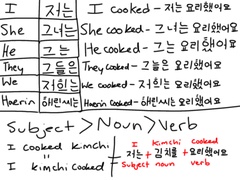 I 저는 I cooked - 저는 요리했어요
She 그녀는 She cooked - 그녀는 요리했어요
He 그는 He cooked - 그는 요리했어요
They 그들은 They cooked - 그들은 요리했어요
We 저희는 We cooked - 저희는 요리했어요
Haerin 해린씨는 Haerin Cooked - 해린씨는 요리했어요
Subject > Noun > Verb
I cooked kimchi
=
I kimchi cooked
I kimchi cooked
저는 + 김치를 + 요리했어요
Subject noun verb